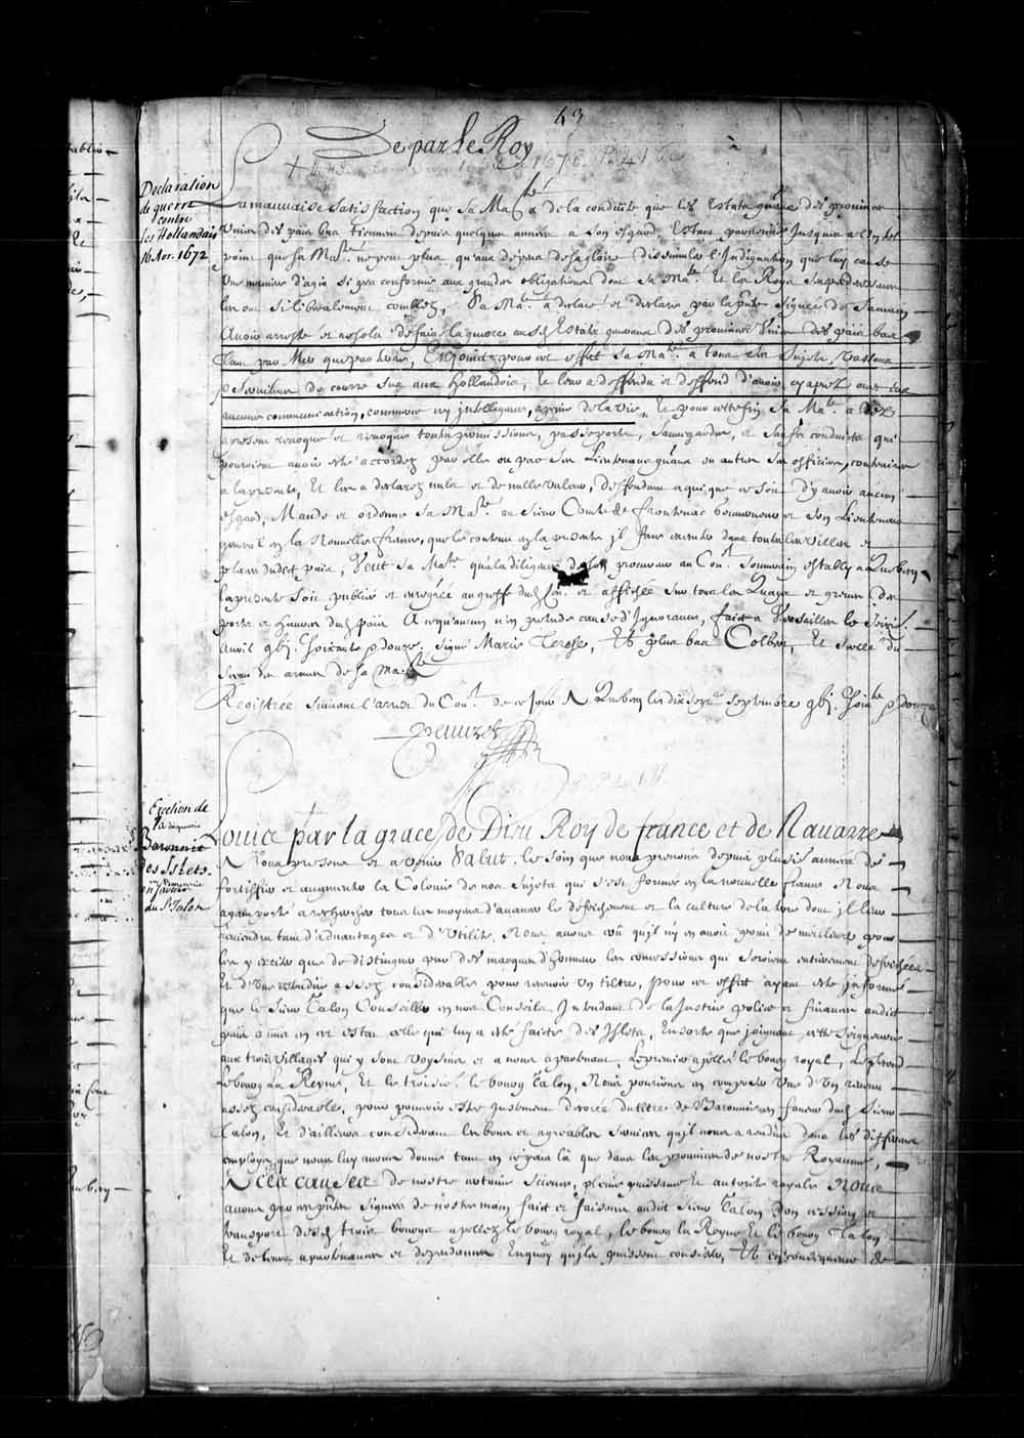 43
De par le Roy
Declaration
de guerre
contre
les Hollandais
16 Avr. 1672
La mauuaise satisfaction que Sa Ma.té a de la conduite que les Estats gñaux des prouinces
Vnies des païs bas tiennent depuis quelques années a son esgard Estant paruenüe Jusques a
point que Sa Ma.té ne peut plus qu'aux despens de sa gloire dissimuler l'Indignation que luy cause
Une maniere d'agir si peu conforme aux grandes obligations dont Sa Ma.té Et les Roys
les ont si liberalement comblez, Sa Ma.té a declaré et declare par la pñte signée de sa main
Auoir arresté et resolu de faire la guerre ausd. Estats gñaux des prouinces Vnies des païs bas
tant par Mer que par terre, Enjoinct pour cet effet Sa Ma.té a tous ses Sujets, vassaux
et Seruiteurs de courre sus aux Hollandois, Et leur a deffendu et deffend d'auoir cy apres auec eux
aucune communication, commerce ny intelligence, a peine de la vie, Et pour cette fin Sa Ma.té a dez
a present reuoqué et reuoque toutes permissions, passeports, Sauuegardes, et Saufs conduits qui
pourroient auoir esté accordez par elle ou par ses Lieutenans gñaux ou autres ses officiers, contraires
a la presente, Et les a declarez nuls et de nulle valeur, deffendant a qui que ce soit d'y auoir aucun
esgard, Mande et ordonne Sa Ma.té au Sieur Comte de frontenac Gouuerneur et son Lieutenant
general en la Nouuelle france, que le contenu en la presente jl face executer dans toutes les villes et
places dudict païs, Veut Sa Ma.té qu'a la diligence de son procureur au Con.l Souuerain estably a Quebecq
la presente soit publiée et enregrée au greffe dud. Con.l et affichée sur tous les Quays et greues des
ports et haures dud. païs A ce qu'aucun n'en pretende cause d'Ignorance, faict a Versailles le
Auril gbj. soixante et douze. Signé Marie Terese, Et plus bas Colbert, Et scellé du
sceau des armes de Sa Ma.té
Registrée suiuant l'arrest du Con.l de ce jour A Quebecq le septembre gbj. soix.te et douze
Peuuret
Erection de
la
Baronnie
des Islets.
en faveur
du S.r Talon
Louis par la grace de Dieu Roy de france et de Nauarre
A tous presens et a venir Salut. Le soin que nous prenons depuis plus.rs années de
fortiffier et augmenter la Colonie de nos Sujets qui s'est formée en la nouuelle france Nous
ayant porté a rechercher tous les moyens d'auancer le defrichement et la culture de la terre dont jl leur
reuiendra tant d'aduantages et d'Vtilité, Nous auons crû qu'il n'y en auoit point de meilleur pour
les y exciter que de distinguer par des marques d'honneur les concessions qui seroient entierement defrichées
Et d'vne estendüe assez considerable pour receuoir vn tiltre, pour cet effet ayant esté jnformé
que le Sieur Talon Conseiller en nos Conseils, Jntendant de la Justice police et finances audict
païs a mis en cet estat celle qui luy a esté faicte des Jslets, En sorte que joignant cette Seigneurie
aux trois villages qui y sont voysins et a nous apartenant, Le premier apellé le bourg royal, Le second
Le bourg la Reyne, Et le troisié. le bourg Talon, Nous pourrions en composer vne d'vn reuenu
assez considerable, pour pouuoir estre justement decorée du tiltre de Baronnie en faueur dud. Sieur
Talon, Et d'ailleurs considerant les bons et agreables Seruices qu'il nous a rendus dans les differens
employs que nous luy auons donné tant en ce païs là que dans les prouinces de nostre Royaume,
A ces causes de nostre certaine Science, pleine puissance et autorité royale Nous
auons par ces pñtes signées de nostre main faict et faisons audit Sieur Talon Don cession et
transport desd. trois bourgs apellez le bourg royal, le bourg la Reyne Et le bourg Talon
Et de leurs apartenances et dependances En quoy qu'ils puissent consister, Et en consequence de